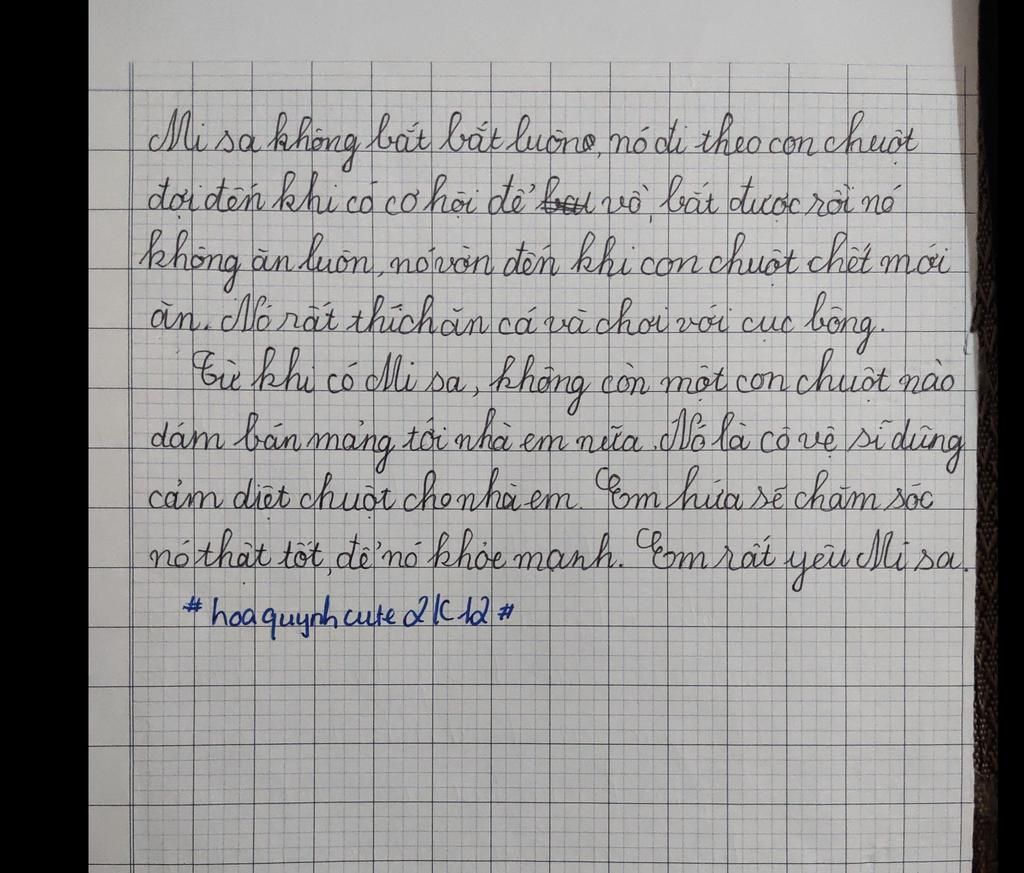 Mi sa không bắt bắt luôno, nó đi theo con chuột
đợi đến khi có cơ hội để vồ, bắt được rồi nó
không ăn luôn, nó vờn đến khi con chuột chết mới
ăn. Nó rất thích ăn cá và chơi với cục bông.
Từ khi có Mi sa, không còn một con chuột nào
dám bán mảng tới nhà em nữa. Nó là cô vệ sĩ dũng
cảm diệt chuột cho nhà em. Em hứa sẽ chăm sóc
nó thật tốt, để nó khỏe mạnh. Em rất yêu Mi sa.
# hoaquynhcute 2K12 #